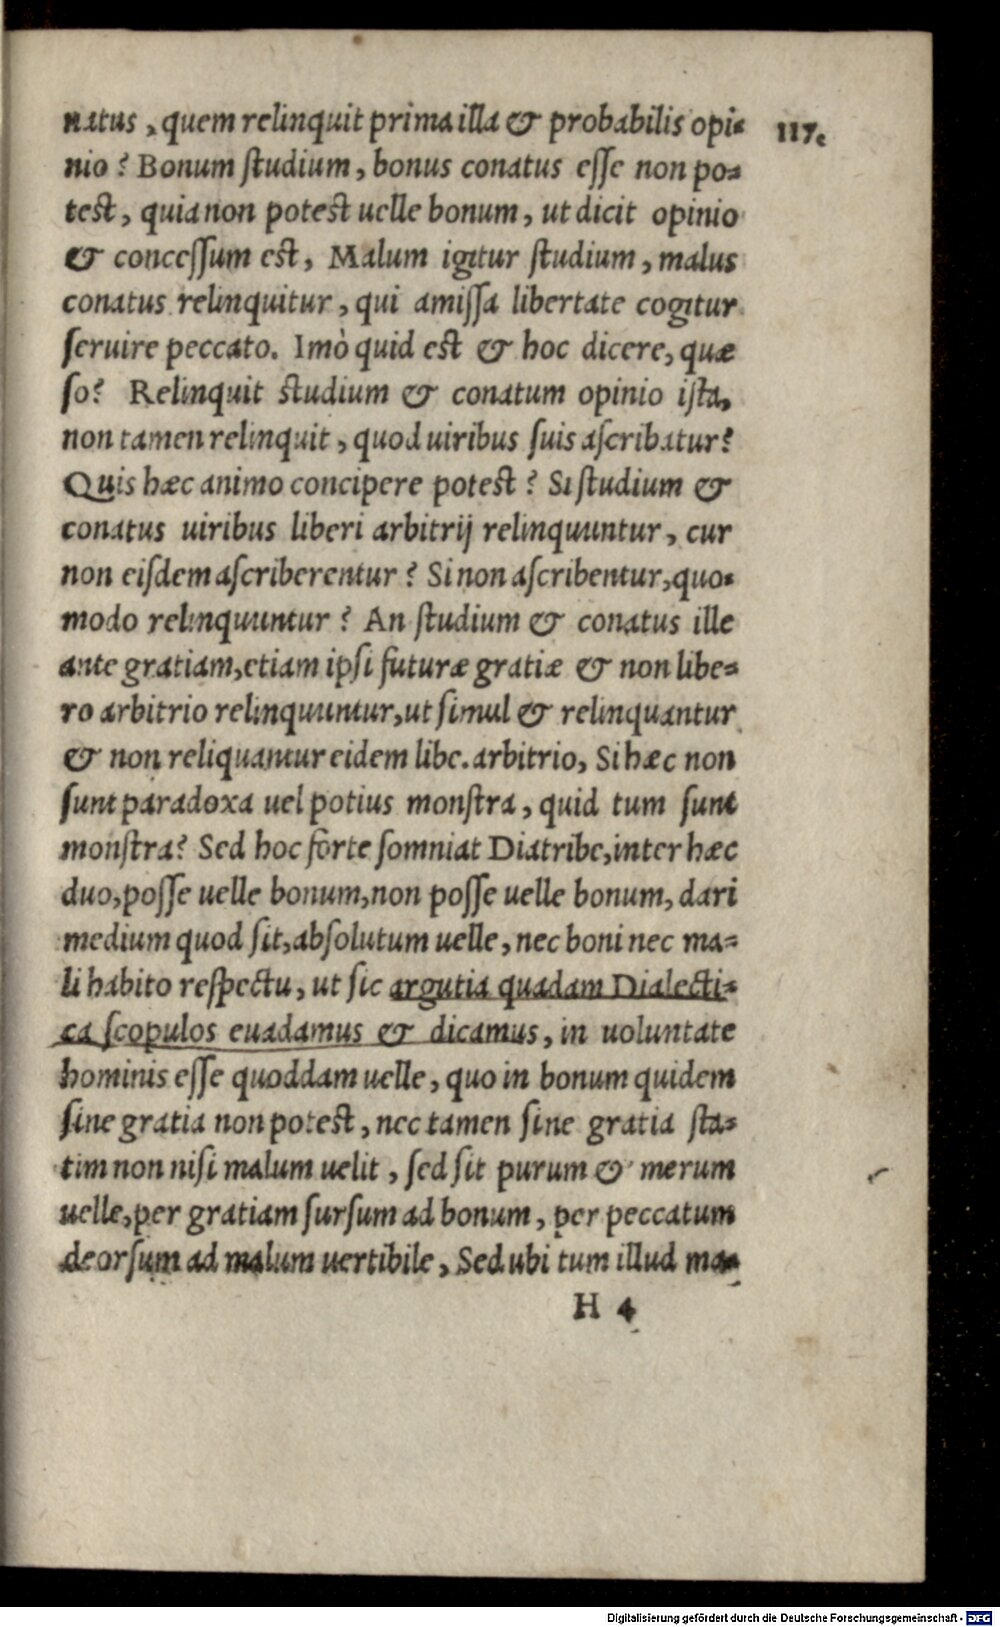 natus, quem relinquit prima illa & probabilis opi- 117.
nio? Bonum ſtudium, bonus conatus eſſe non po-
teſt, quia non poteſt uelle bonum, ut dicit opinio
& conceſſum eſt, Malum igitur ſtudium, malus
conatus relinquitur, qui amiſſa libertate cogitur
ſeruire peccato. Imò quid eſt & hoc dicere, quæ
ſo? Relinquit ſtudium & conatum opinio iſta,
non tamen relinquit, quod uiribus ſuis aſcribatur?
Quis hæc animo concipere poteſt? Si ſtudium &
conatus uiribus liberi arbitrij relinquuntur, cur
non eiſdem aſcriberentur? Si non aſcribentur, quo-
modo relinquuntur? An ſtudium & conatus ille
ante gratiam, etiam ipſi futuræ gratiæ & non libe-
ro arbitrio relinquuntur, ut ſimul & relinquantur
& non reliquantur eidem libe. arbitrio, Si hæc non
ſunt paradoxa uel potius monſtra, quid tum ſunt
monſtra? Sed hoc forte ſomniat Diatribe, inter hæc
duo, poſſe uelle bonum, non poſſe uelle bonum, dari
medium quod ſit, abſolutum uelle, nec boni nec ma-
li habito reſpectu, ut ſic argutia quadam Dialecti-
ca ſcopulos euadamus & dicamus, in uoluntate
hominis eſſe quoddam uelle, quo in bonum quidem
ſine gratia non poteſt, nec tamen ſine gratia ſta-
tim non niſi malum uelit, ſed ſit purum & merum
uelle, per gratiam ſurſum ad bonum, per peccatum
deorſum ad malum uertibile, Sed ubi tum illud ma-
H 4
Digitalisierung gefördert durch die Deutsche Forschungsgemeinschaft - DFG